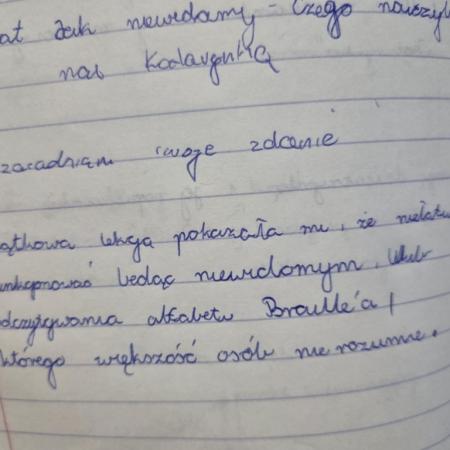 at Jak niewidomy - Czego nauczył
nas
zasadniam swoje zdanie
ątkowa lekcja pokazała mi, że niełatwo
unkcjonować będąc niewidomym.
dczytywania alfabetu Braille'a,
którego większość osób nie rozumie.